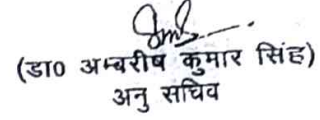 (डा० अम्बरीष कुमार सिंह)
अनु सचिव